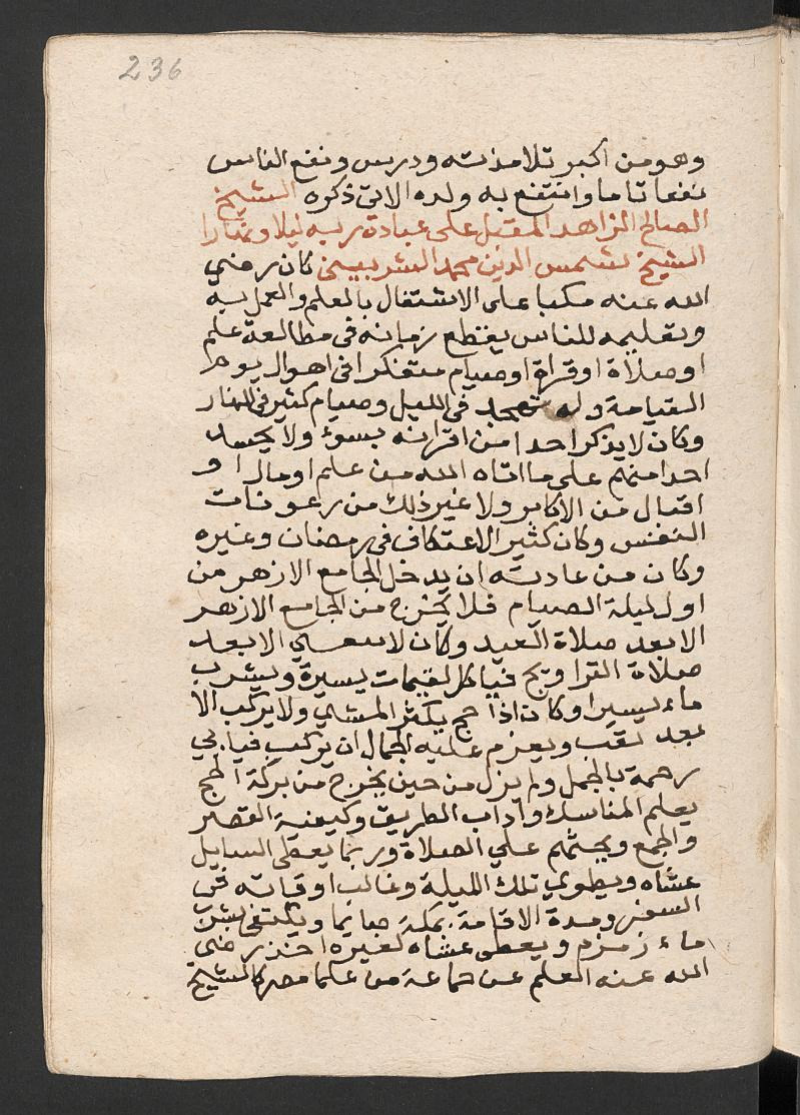 236
وهو من اكبر تلامذته ودرس ونفع الناس
نفعا تاما وانتفع به ولده الاتى ذكره الشيخ
الصالح الزاهد المقبل على عبادة ربه ليلا ونهارا
الشيخ شمس الدين محمد الشربينى كان رضي
الله عنه مكبا على الاشتغال بالعلم والعمل به
وتعليمه للناس يقتطع زمانه فى مطالعة علم
او صلاة او قراة او صيام متفكرا فى اهوال يوم
القيامة وله تهجد فى الليل وصيام كثير فى النهار
وكان لا يذكر احدا من اقرانه بسوء ولا يحسد
احدا منهم على ما اتاه الله من علم او مال او
اقبال من الاكابر ولا غير ذلك من رعونات
النفس وكان كثير الاعتكاف فى رمضان وغيره
وكان من عادته ان يدخل الجامع الازهر من
اول ليلة الصيام فلا يخرج من الجامع الازهر
الا بعد صلاة العيد وكان لا يتعشي الا بعد
صلاة التراويح فياكل لقيمات يسيرة ويشرب
ماء يسيرا وكان اذا حج يكثر المشي ولا يركب الا
بعد تعب ويعزم عليه الجمال ان يركب فيابي
رحمة بالجمل ولم يزل من حين يخرج من بركة الحج
يعلم المناسك واداب الطريق وكيفية القصر
والجمع ويحثهم علي الصلاة وربما يعطى السايل
عشاه ويطوي تلك الليلة وغالب اوقاته فى
السفر ومدة الاقامة بمكة صايما ويكتفى بشرب
ماء زمزم ويعطى عشاه لغيره اخذ رضي
الله عنه العلم عن جماعة من علما مصر كالشيخ